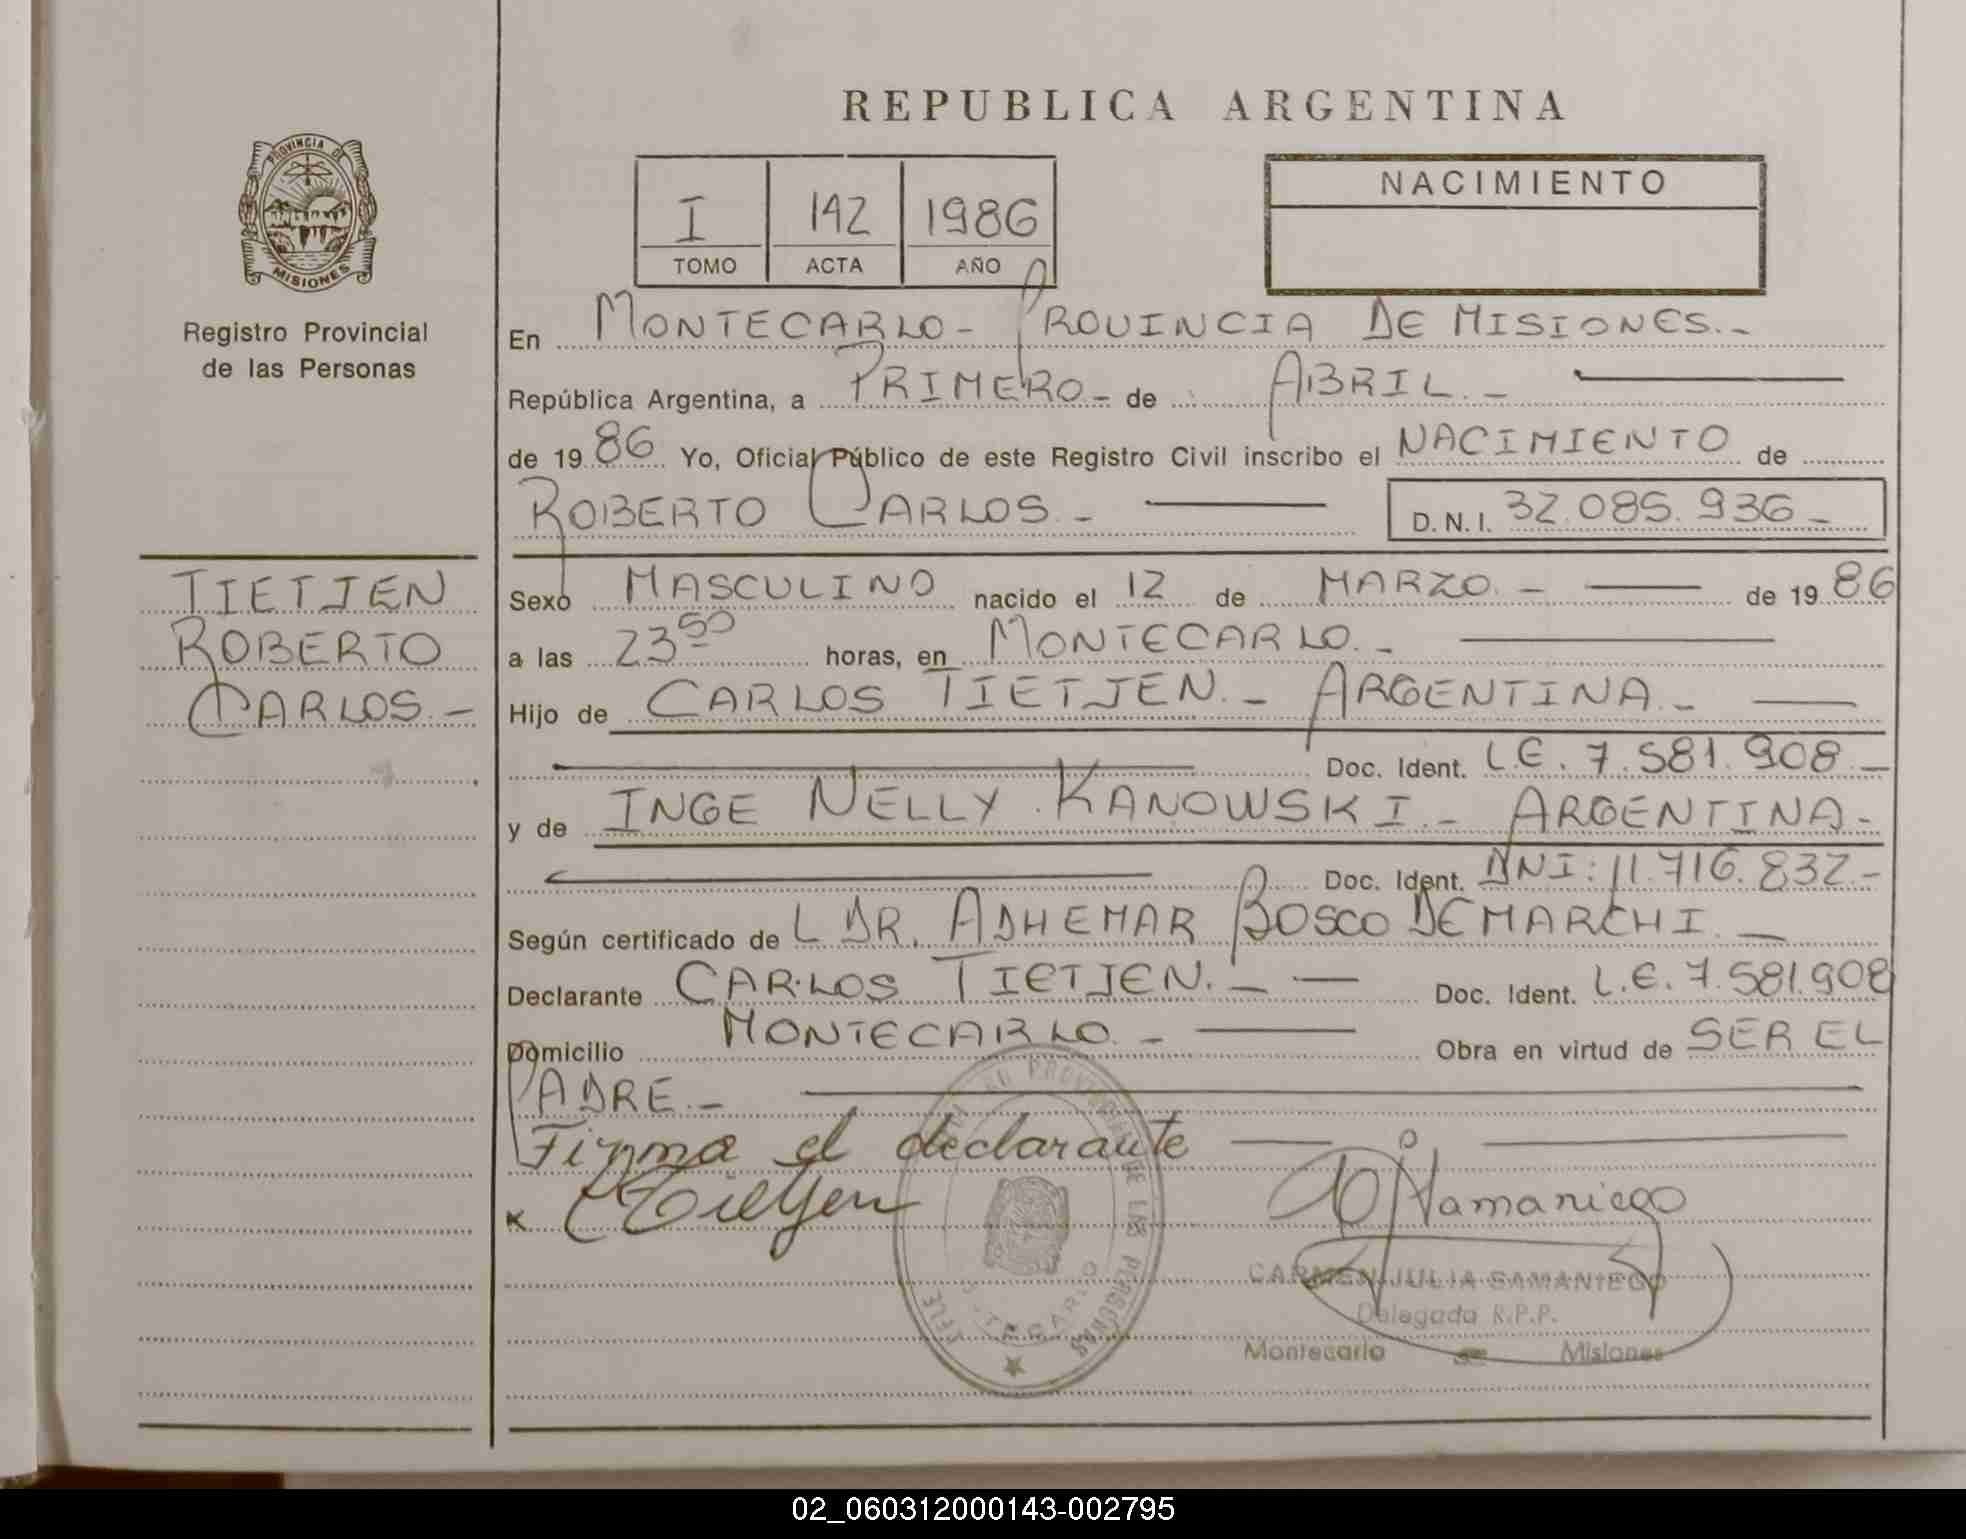 REPUBLICA ARGENTINA
PROVINCIA DE
MISIONES
Registro Provincial
de las Personas
I 142 1986
TOMO ACTA AÑO
NACIMIENTO
En MONTECARLO - PROVINCIA DE MISIONES.-
República Argentina, a PRIMERO - de ABRIL. -
de 19 86 Yo, Oficial Público de este Registro Civil inscribo el NACIMIENTO de
ROBERTO CARLOS. - D.N.I. 32.085.936 -
TIETJEN
ROBERTO
CARLOS. -
Sexo MASCULINO nacido el 12 de MARZO. - de 19 86
a las 23 50 horas, en MONTECARLO. -
Hijo de CARLOS TIETJEN. - ARGENTINA. -
Doc. Ident. L.E. 7.581.908 -
y de INGE NELLY KANOWSKI. - ARGENTINA -
Doc. Ident. DNI: 11.716.832.-
Según certificado de L DR. ADHEMAR BOSCO DEMARCHI. -
Declarante CARLOS TIETJEN. - Doc. Ident. L.E. 7.581.908
Domicilio MONTECARLO. - Obra en virtud de SER EL
PADRE. -
Firma el declarante
x CTietjen
Samaniego
CARMEN JULIA SAMANIEGO
Delegada R.P.P.
Montecarlo Misiones
PROVINCIAL DE LAS PERSONAS
02_060312000143-002795